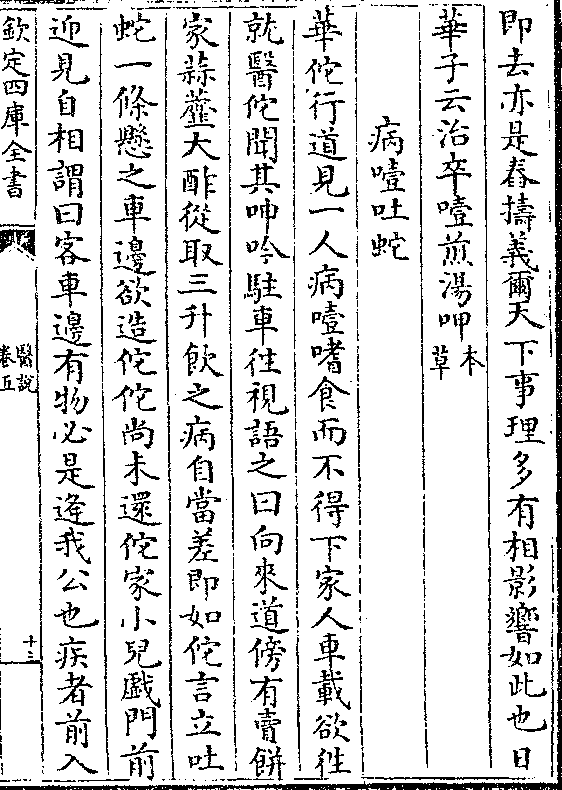 即去亦是舂擣義爾天下事理多有相影響如此也日
華子云治卒噎煎湯呷本草
病噎吐蛇
華佗行道見一人病噎嗜食而不得下家人車載欲徃
就醫佗聞其呻吟駐車徃視語之曰向來道傍有賣餅
家蒜虀大酢從取三升飲之病自當差即如佗言立吐
蛇一條懸之車邊欲造佗佗尚未還佗家小兒戲門前
迎見自相謂曰客車邊有物必是逢我公也疾者前入
欽定四庫全書
醫說
卷五
十三